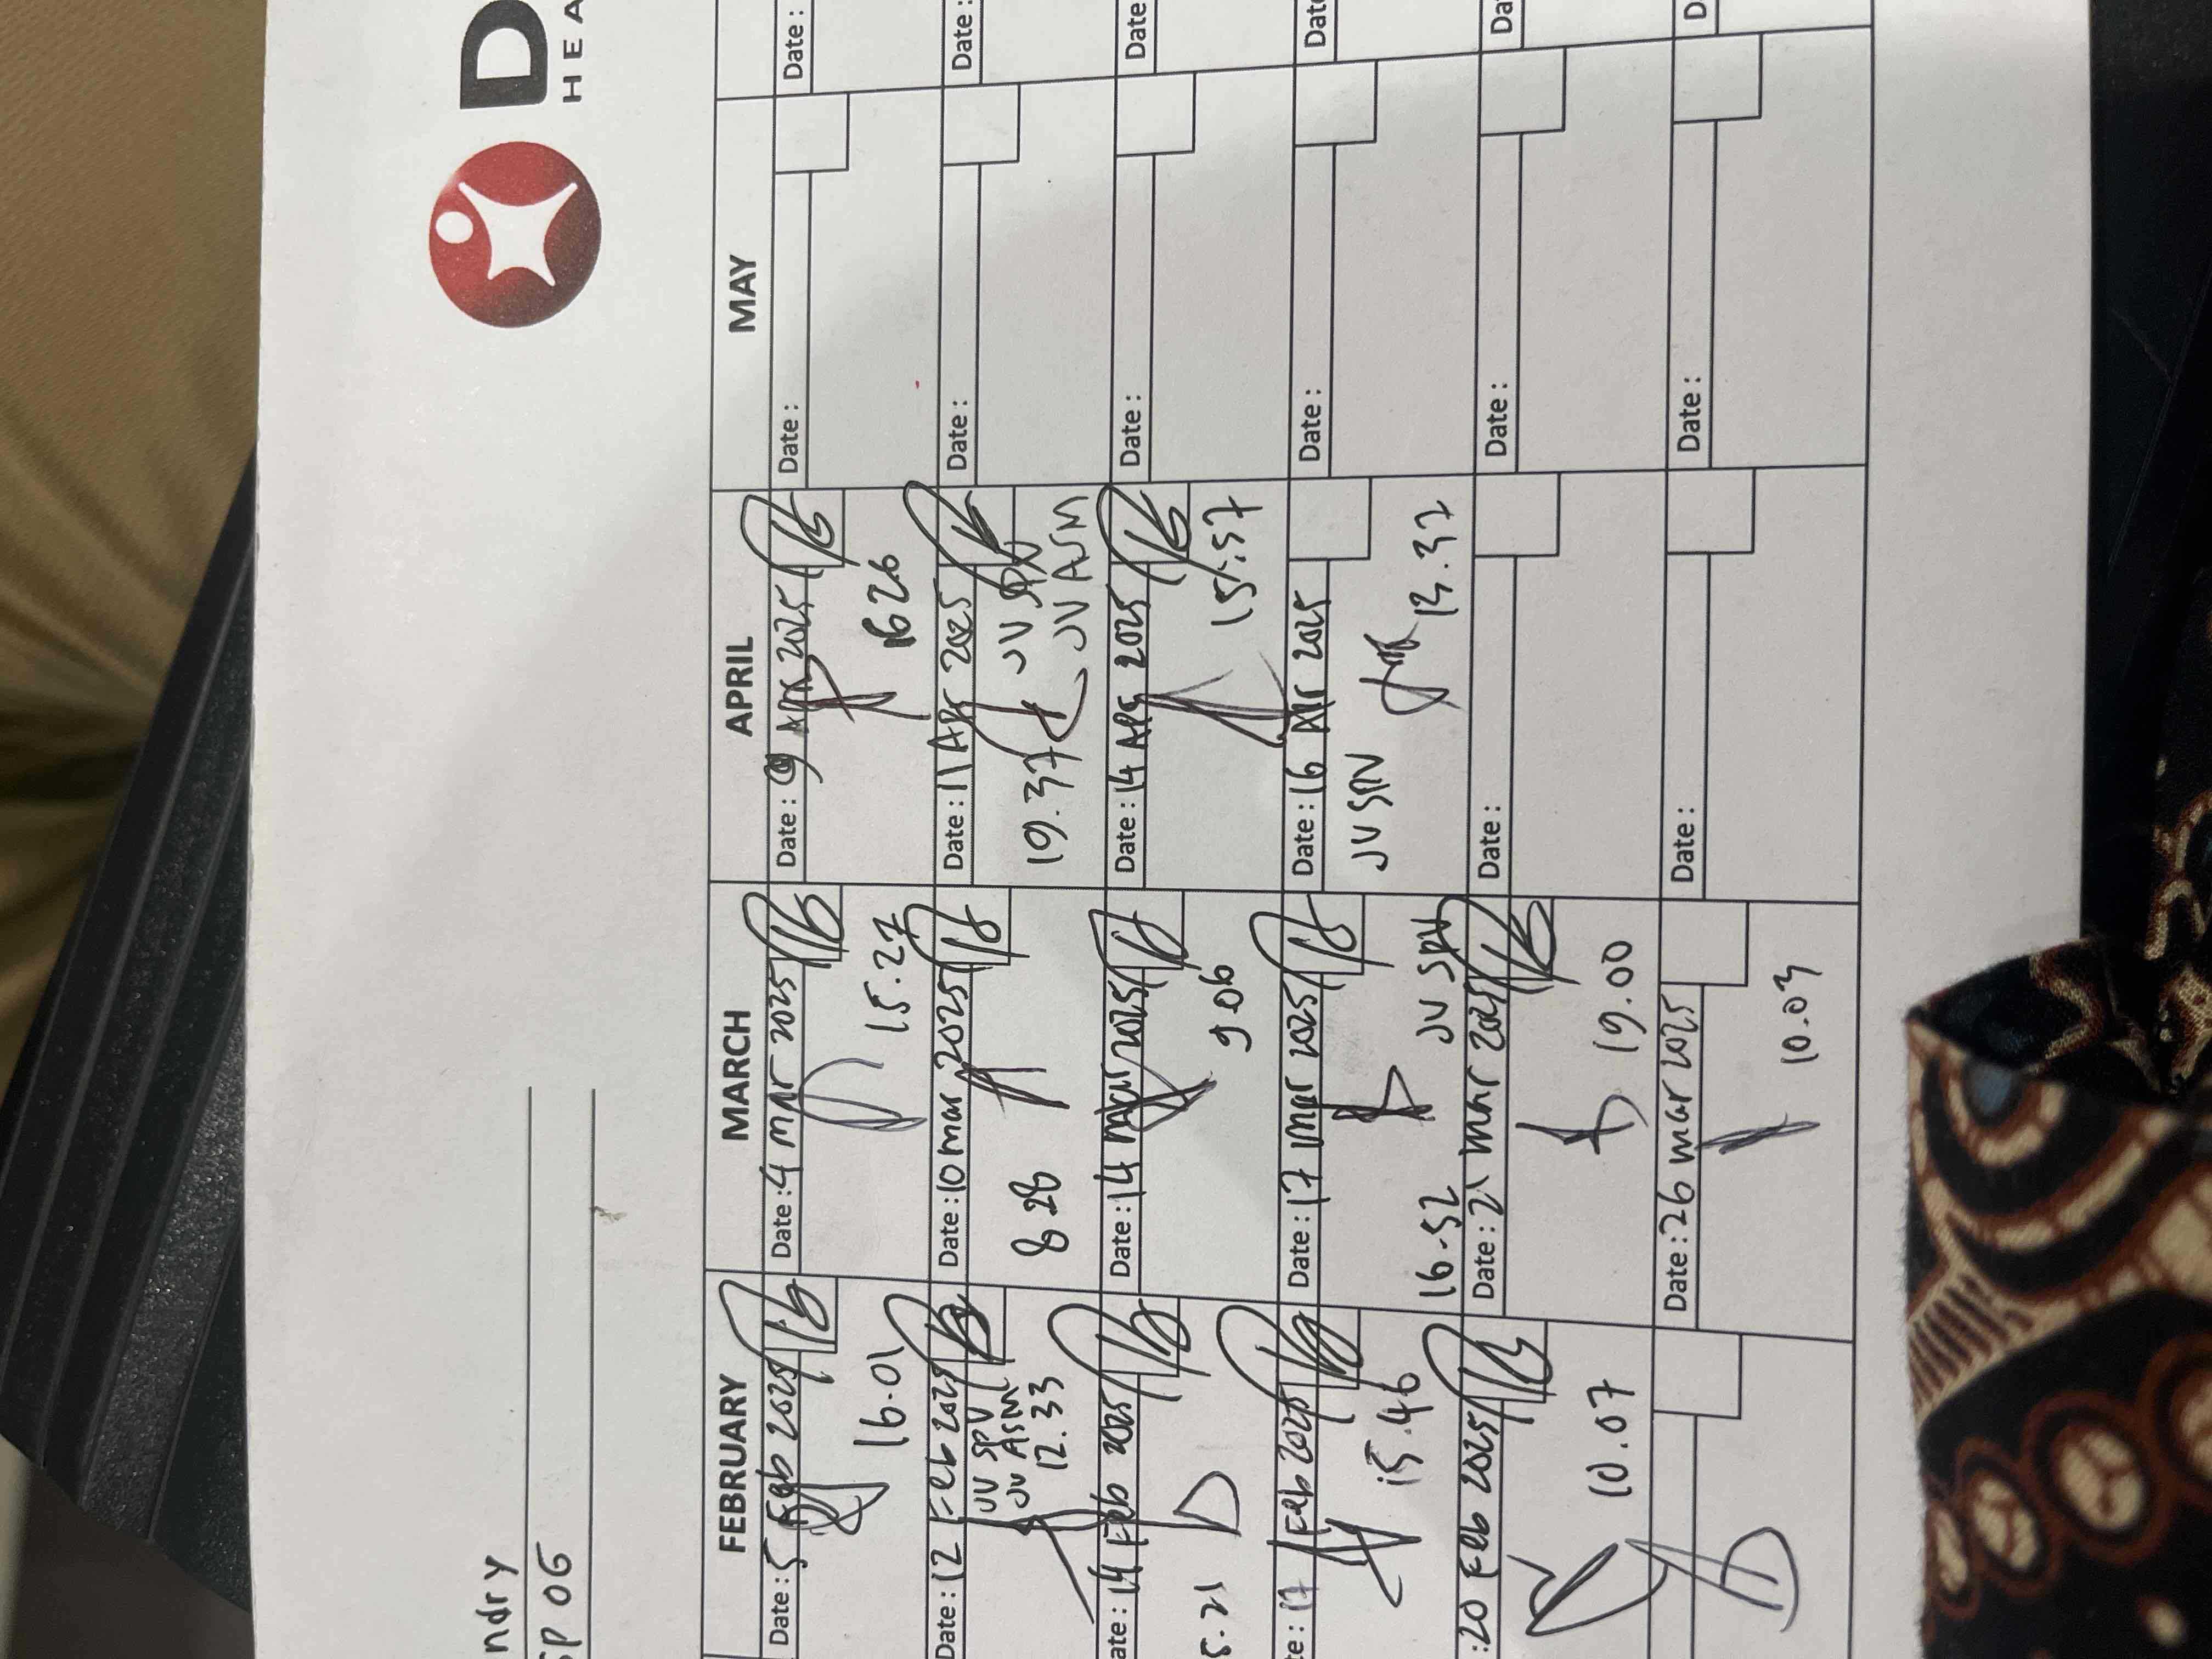 D
HEA
ndry
SP OG
FEBRUARY MARCH APRIL MAY
Date: 5 Feb 2025 Date: 4 mar 2025 Date: 9 Apr 2025 Date: Date:
16.01 15.27 16 26
Date: 12 Feb 2025 Date: 10 mar 2025 Date: 11 Apr 2025 Date: Date:
JV SPV
JV ASM
12.33 8 28 19.37 JV SPV
JV ASM
ate: 14 Feb 2025 Date: 14 mar 2025 Date: 14 Apr 2025 Date: Date
5.21 9 06 15.57
te: 17 Feb 2025 Date: 17 mar 2025 Date: 16 Apr 2025 Date: Date
15.46 16.52 JV SPV JV SPV 13.32
:20 Feb 2025 Date: 21 mar 2025 Date: Date: Da
10.07 19.00
Date: 26 mar 2025 Date: Date: D
10.03